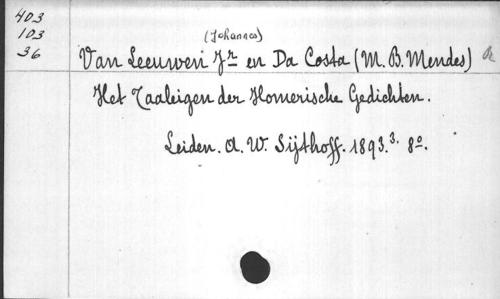 403
103
36
(Johannes)
Van Leeuwen Jr en Da Costa (M. B. Mendes)
Het Taaleigen der Homerische Gedichten.
Leiden. A. W. Sijthoff. 1893.3. 8o.